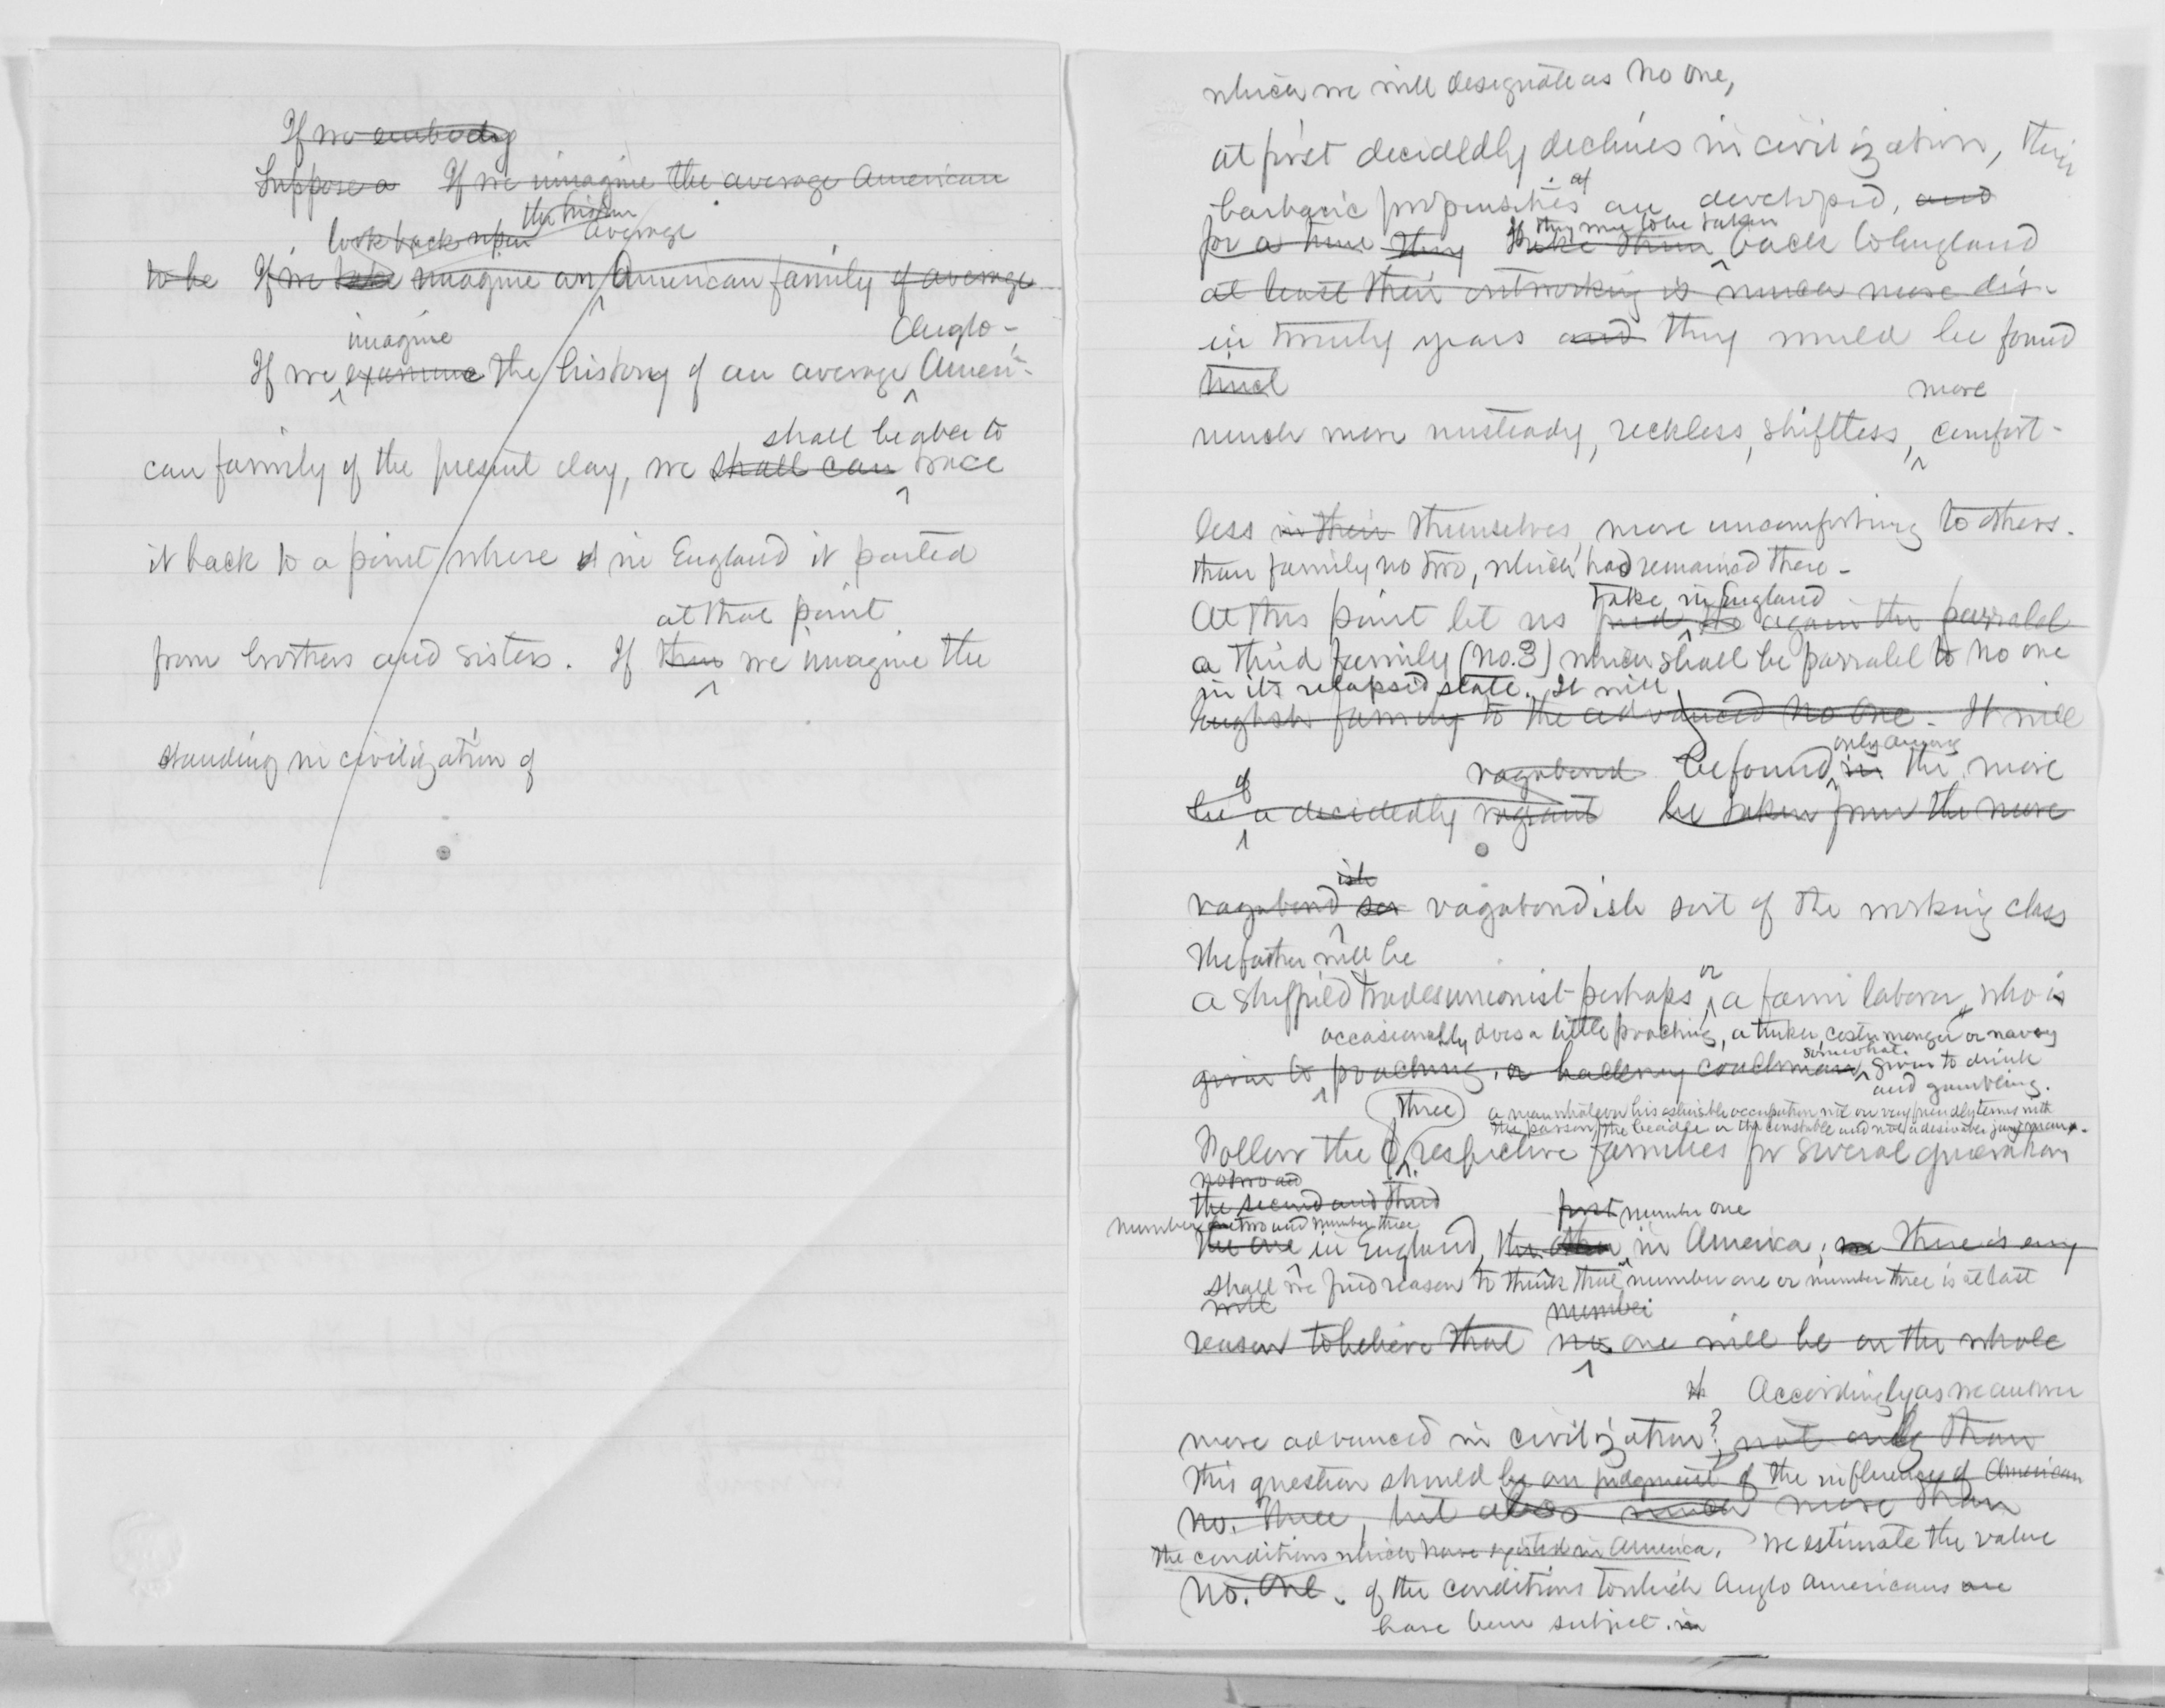 If we embody
Suppose a If we imagine the average American
the history
look back upon average
to be If we take imagine an American family of average
imagine Anglo-
If we examine the history of an average Ameri-
shall be able to
can family of the present day, we shall can trace
it back to a point where in England it parted
at that point
from brothers and sisters. If then we imagine the
standing in civilization of
which we will designate as No one,
at first decidedly declines in civilization, their
barbaric propensities are developed, and
they were to be taken
for a time they take them back to England
at least their outworking is much more dis-
in twenty years and they would be found
that
more
much more unsteady, reckless, shiftless, comfort-
less in their themselves, more uncomforting to others.
than family no two, which had remained there -
take in England
At this point let us find again the parralel
a third family (no. 3) which shall be parralel to No one
in its relapsed state. It will
English family to the advanced No One. It will
only among
vagabond be found in the more
of
be a decidedly vagrant be taken from the more
ish
vagabond vagabondish sort of the working class
The father will be
or
a Sheffield tradesunionist perhaps, a farm laborer, who is
occasionally does a little poaching, a tinker, costermonger or navvy
somewhat
given to poaching, a hackney coachman given to drink
and gambling.
three
a man whatever his ostensible occupation not on very friendly terms with
the parson, the beadle or the constable and not a desirable jury man.
Follow the respective families for several generations
no two and
the second and third
first number one
number two and number three
the one in England, the other in America; there is any
shall we find reason to think that number one or number three is at last
will
number
reason to believe that no. one will be on the whole
Accordingly as we answer
more advanced in civilization? not only than
this question should be our judgment of the influence of American
no. three, but also much more than
the conditions which have existed in America. we estimate the value
No. One. of the conditions to which Anglo Americans are
have been subject. in